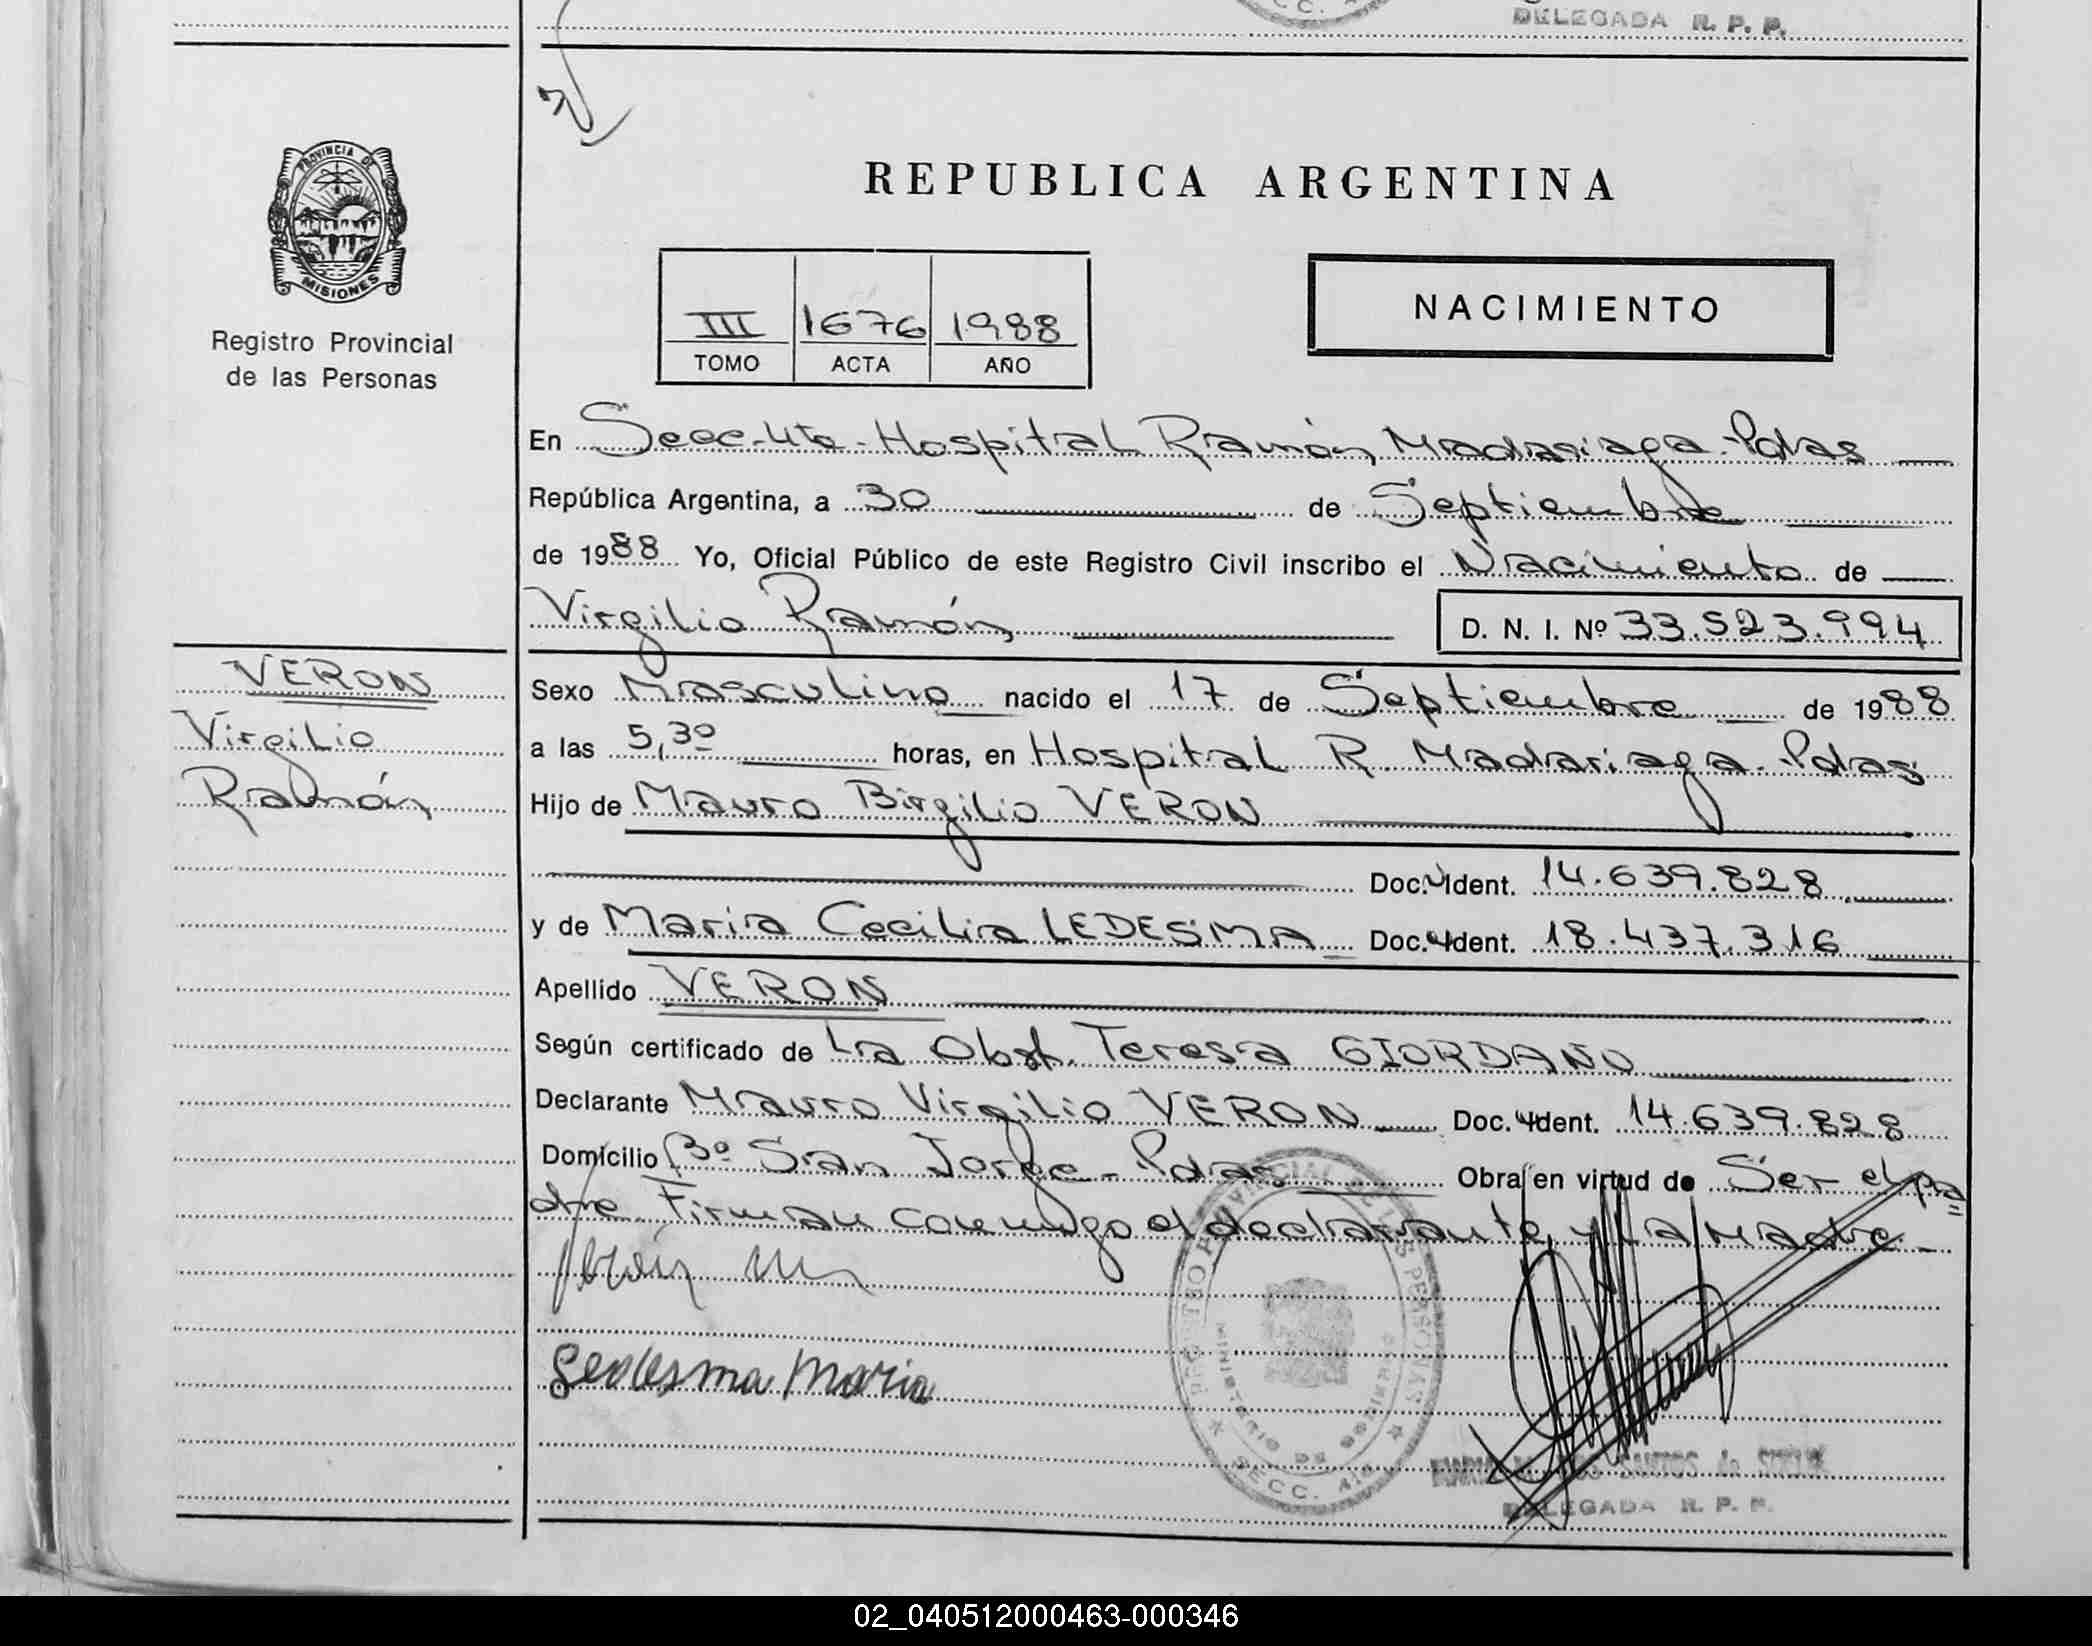 DELEGADA R. P. P.
PROVINCIA DE
MISIONES
Registro Provincial
de las Personas
REPUBLICA ARGENTINA
III 1676 1988
TOMO ACTA AÑO
NACIMIENTO
En Secc. 4ta. Hospital Ramón Madariaga-Pdas
República Argentina, a 30 de Septiembre
de 1988 Yo, Oficial Público de este Registro Civil inscribo el Nacimiento de
Virgilio Ramón D. N. I. Nº 33.523.994
VERON
Virgilio
Ramón
Sexo Masculino nacido el 17 de Septiembre de 1988
a las 5,30 horas, en Hospital R. Madariaga-Pdas
Hijo de Mauro Birgilio VERON
Doc. Ident. 14.639.828
y de Maria Cecilia LEDESMA Doc. Ident. 18.437.316
Apellido VERON
Según certificado de La Obst. Teresa GIORDANO
Declarante Mauro Virgilio VERON Doc. Ident. 14.639.828
Domicilio Bº San Jorge-Pdas Obra en virtud de Ser el pa=
dre Firman conmigo el declarante, y La Madre-
Ledesma Maria
REGISTRO PROVINCIAL DE LAS PERSONAS
MINISTERIO DE GOBIERNO
SECC. 4ta
SANTOS de
DELEGADA R. P. P.
02_040512000463-000346